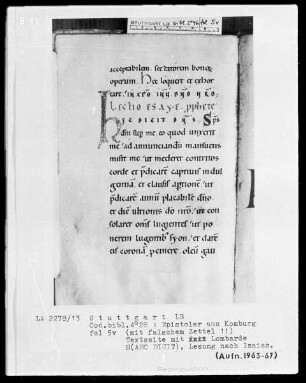 STUTTGART LB
acceptabilem sectatorem bonorum
operum. Hec loquere et exhor
tare. in xpo ihu dno nro.
Lectio esaye pphete
Hec dicit dns. Sps
dni sup me. eo quod unxerit
me. ad annunciandum mansuetis
misit me. ut mederer contritis
corde et pdicarem captivis indul
gentiam. et clausis aptionem. ut
pdicarem annum placabile dno.
et diem ultionis do nro. ut con
solarer omnes lugentes. ut po
nerem lugentibus syon. et darem
eis coronam p cinere. oleum gau
LA 2278/13 Stuttgart LB
Cod.bibl.4°28 : Epistolar aus Komburg
fol 5v (mit falschem Zettel !!)
Textseite mit Lombarde
H(AEC DICIT), Lesung nach Isaias.
(Aufn.1963-67)